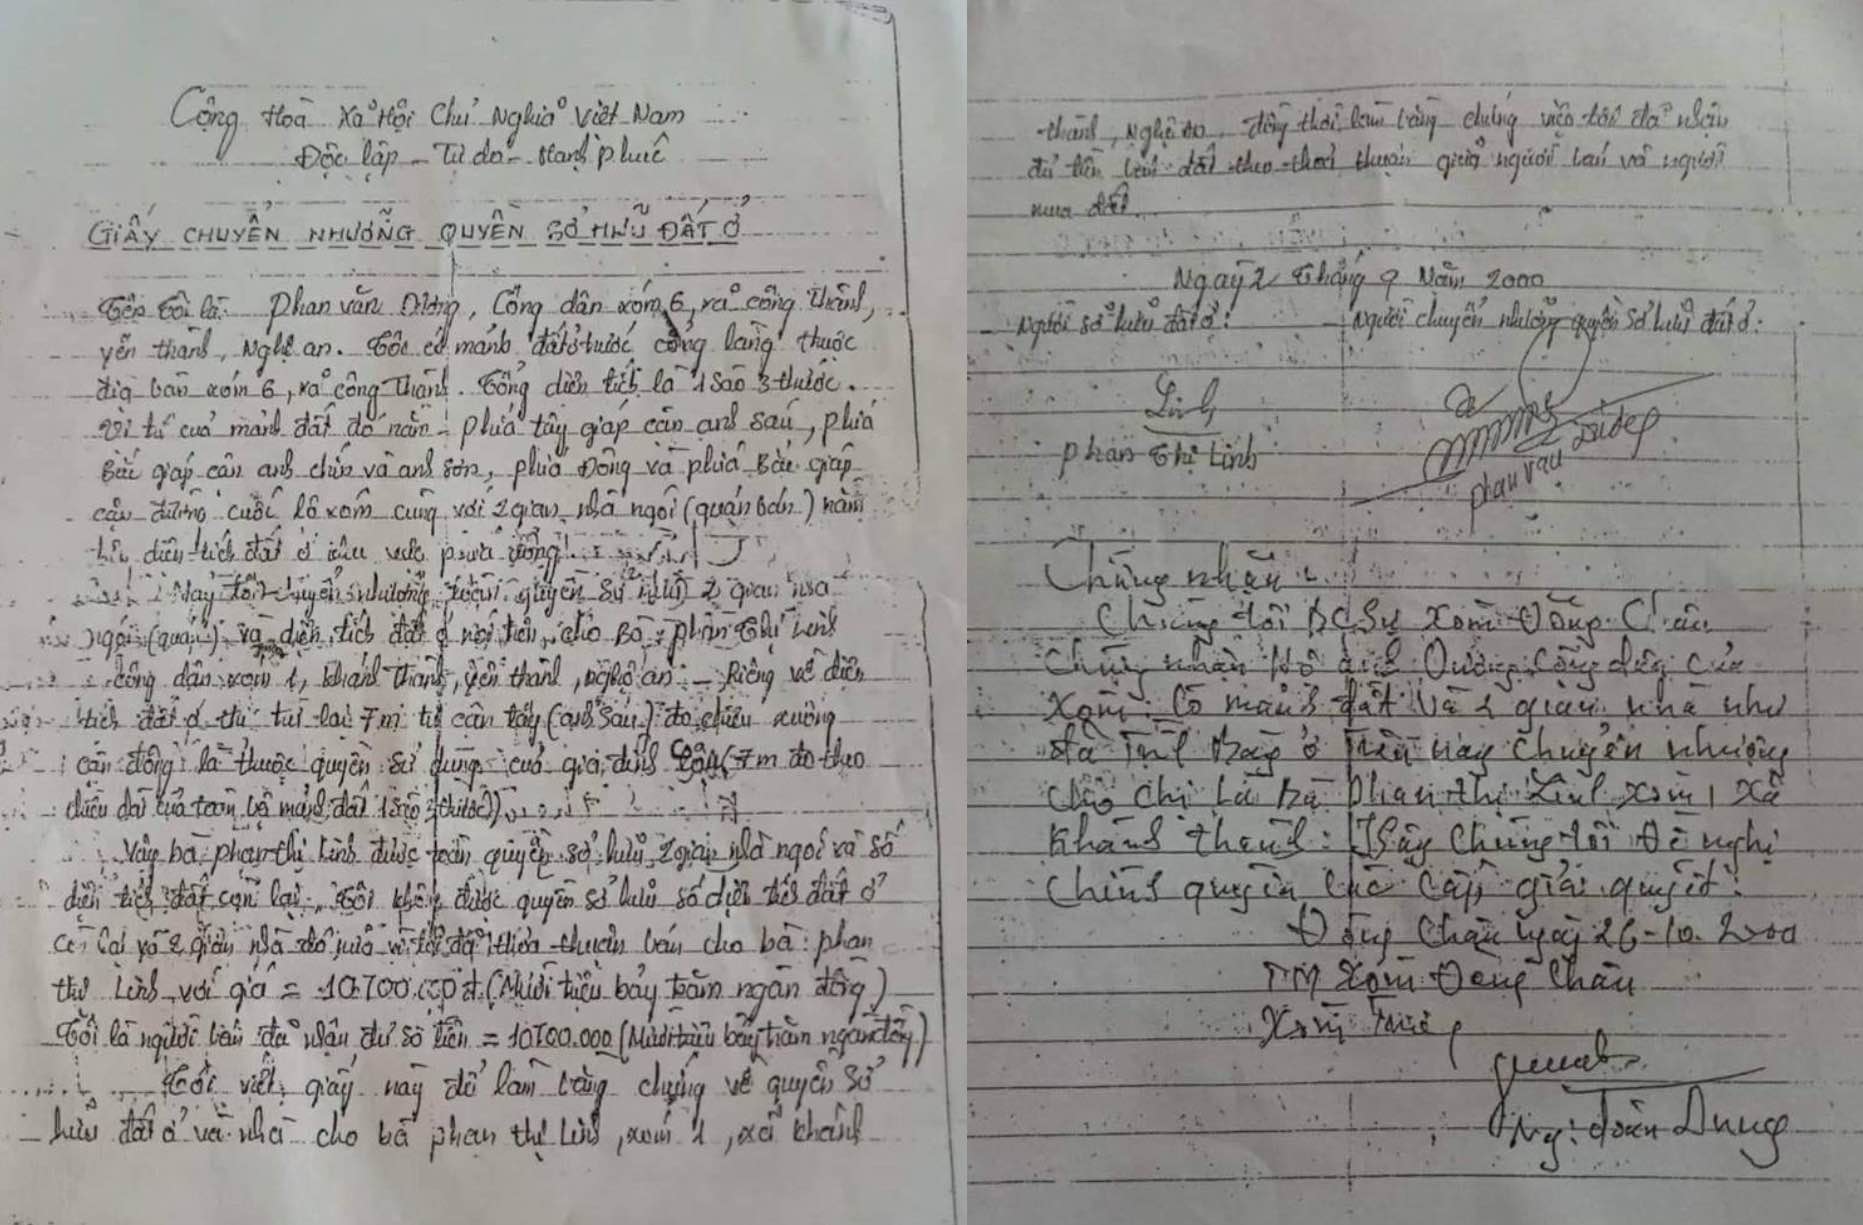 Cộng Hoà Xã Hội Chủ Nghĩa Việt Nam
Độc lập - Tự do - Hạnh phúc
GIẤY CHUYỂN NHƯỢNG QUYỀN SỞ HỮU ĐẤT Ở
Tên tôi là: Phan văn Dương, Công dân xóm 6, xã công Thành,
yên thành, Nghệ an. Tôi có mảnh đất ở trước cổng làng thuộc
địa bàn xóm 6, xã công Thành. Tổng diện tích là 1 sào 3 thước.
Vị trí của mảnh đất đó nằm - phía tây giáp cận anh sáu, phía
Bắc giáp cận anh chín và anh sơn, phía Đông và phía Bắc giáp
cận đường cuối lô xóm cùng với 2 gian nhà ngói (quán bán) nằm
trên diện tích đất ở
Nay tôi chuyển nhượng quyền sở hữu 2 gian nhà
ngói (quán) và diện tích đất ở nói trên cho Bà: phan Thị Linh
công dân xóm 1, khánh thành, yên thành, nghệ an - Riêng về diện
tích đất ở thì tôi lại 7m từ cận tây (anh Sáu) đo chiều xuống
cận đông là thuộc quyền sử dụng của gia đình tôi (7m đo theo
chiều dài của toàn bộ mảnh đất 1 sào 3 thước)
Vậy bà phan thị Linh được toàn quyền sở hữu 2 gian nhà ngói và số
diện tích đất còn lại. Tôi không được quyền sở hữu số diện tích đất ở
còn lại và 2 gian nhà đó nữa vì tôi đã thỏa thuận bán cho bà: phan
thị Linh với giá = 10.700.000đ (Mười triệu bảy trăm ngàn đồng)
Tôi là người bán đã nhận đủ số tiền = 10700.000 (Mười triệu bảy trăm ngàn đồng)
Tôi viết giấy này để làm bằng chứng về quyền sở
hữu đất ở và nhà cho bà phan thị Linh, xóm 1, xã khánh
thành, Nghệ an, đồng thời làm bằng chứng việc tôi đã nhận
đủ tiền bán đất theo thoả thuận giữa người bán và người
mua đất.
Ngày 2 tháng 9 Năm 2000
Người sở hữu đất ở:
Người chuyển nhượng quyền Sở hữu đất ở:
Linh
phan Thị Linh
phan văn
Chứng nhận:
Chúng tôi BCSự Xóm Đồng Châu
Chứng nhận Hộ anh Dương công dân của
Xóm. Có mảnh đất và 2 gian nhà như
đã trình bày ở trên nay chuyển nhượng
cho chị Là Bà phan thị Linh xóm 1 xã
Khánh thành: Vậy Chúng tôi Đề nghị
Chính quyền các cấp giải quyết.
Đồng Châu ngày 26-10-2000
TM Xóm Đồng Châu
Xóm Trưởng
Ng: Toàn Dung